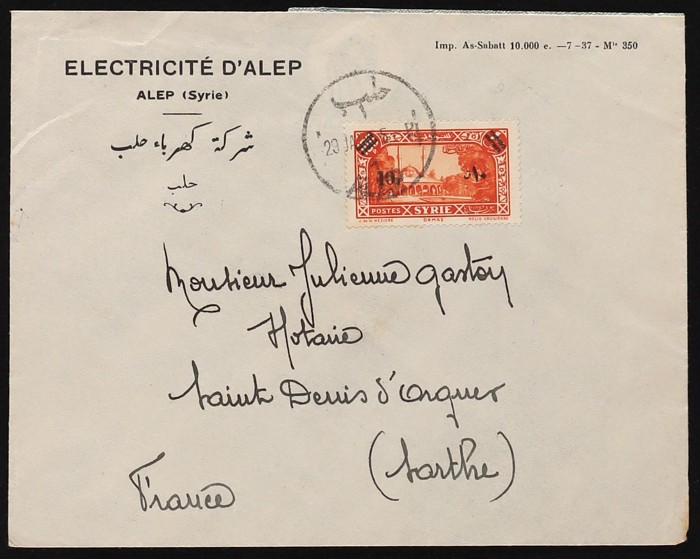 Imp. As-Sabatt 10.000 e. —7-37- Mle 350
ELECTRICITÉ D'ALEP
ALEP (Syrie)
شركة كهرباء حلب
حلب
حلب
POSTES SYRIE
DAMAS
Monsieur Julienne Gaston
Notaire
Saint Denis d'Orques
(Sarthe)
France